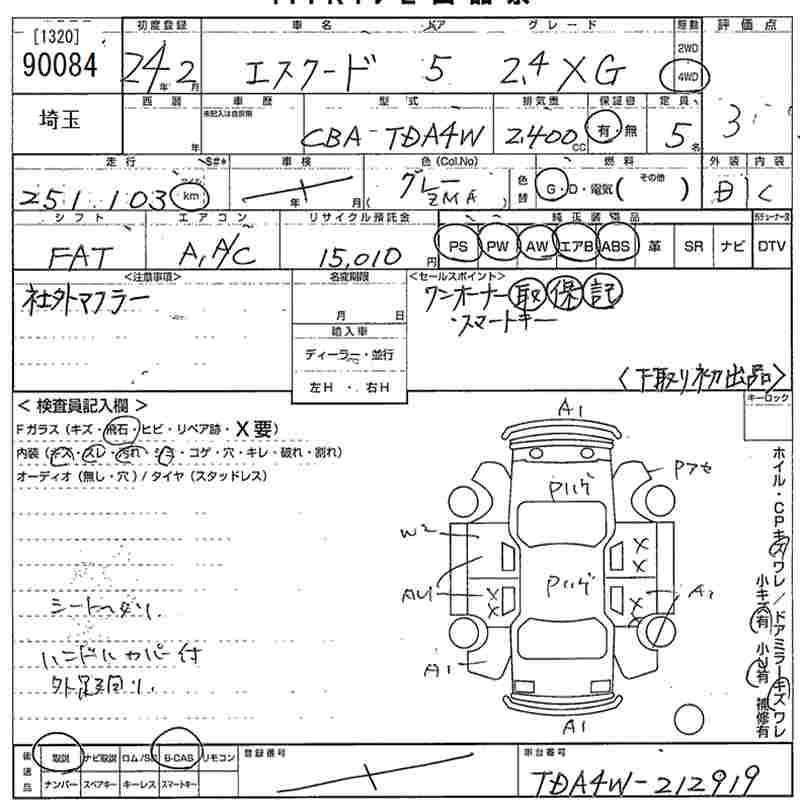 [1320]
90084
初度登録 車名 ドア グレード 駆動 評価点
24年2月 エスクード 5 2,4 XG 2WD 4WD
埼玉
西暦 車歴 型式 排気量 保証書 定員
年 未記入は自家用 CBA-TDA4W 2,400cc 有・無 5名 3
走行 S#* 車検 色(Col.No) 燃料 外装 内装
251,103 マイル km 年 月 グレー (ZMA) 色替 G・D・電気( その他 ) B C
シフト エアコン リサイクル預託金 純正装備品
FAT A,A/C 15,010円 PS PW AW エアB ABS 革 SR ナビ DTV
<注意事項> 名変期限 <セールスポイント>
社外マフラー 月 日 ワンオーナー 取 保 記
輸入車 スマートキー
ディーラー・並行
左H ・ 右H <下取り初出品>
キーロック
< 検査員記入欄 >
Fガラス (キズ・飛石・ヒビ・リペア跡・X要)
内装 (キズ・スレ・汚れ・シミ・コゲ・穴・キレ・破れ・割れ)
オーディオ (無し・穴) / タイヤ (スタッドレス)
A1
Pハゲ Pアセ
W2 X X
Pハゲ
AU1 X X A1
A1
A1
シートヘタリ.
ハンドルカバー付
外足回り.
ホイル・CPキズワレ / ドアミラーキズワレ
小キズ有 小凹有 補修有
後送品 取説 ナビ取説 ロム/SD B-CAS リモコン 登録番号 車台番号
ナンバー スペアキー キーレス スマートキー TDA4W-212919